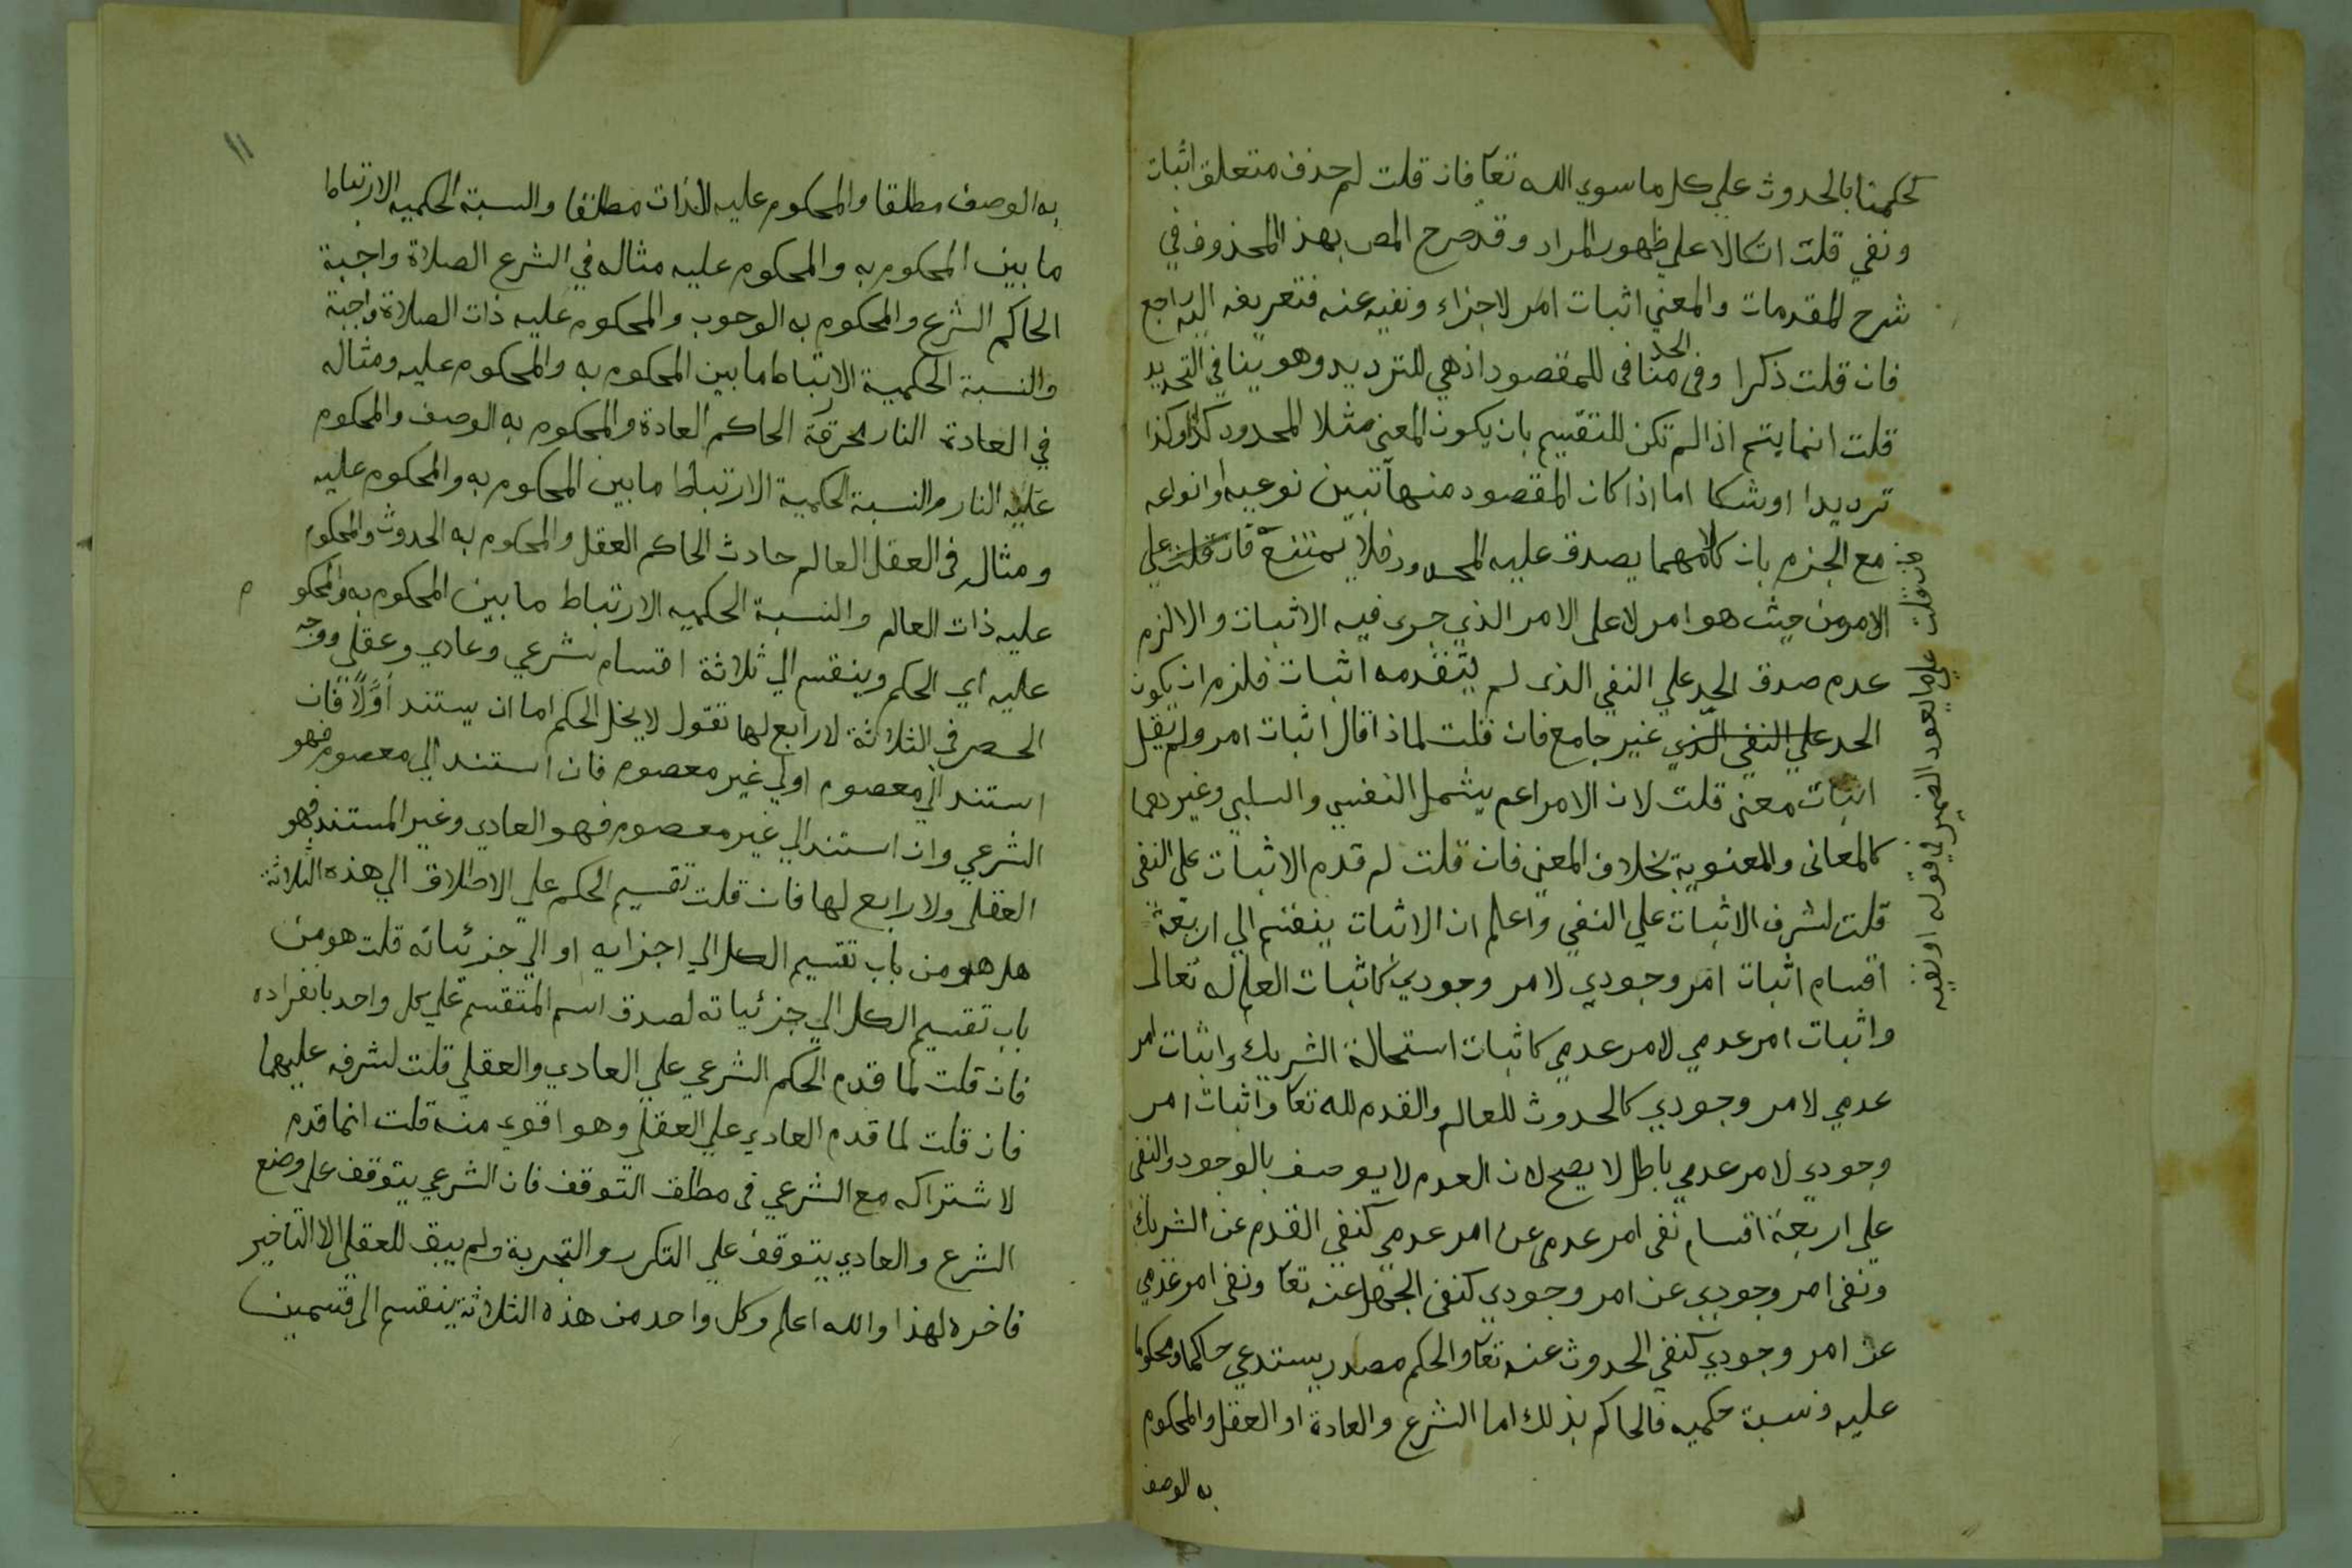 كحكمنا بالحدوث علي كل ما سوي الله تعا فان قلت لم حذف متعلق اثبات
ونفي قلت اتكالا علي ظهور المراد وقد صرح المص بهذ المحذوف في
شرح المقدمات والمعني اثبات امر لاجزاء ونفيه عنه فتعريفه اليه راجع
فان قلت ذكرا وفى الحد منافى للمقصود اذ هي للترديد وهو ينافي التحديد
قلت انما يتم اذا لم تكن للتقسيم بان يكون المعني مثلا المحدود كذا وكذا
ترديدا اوشكا اما اذا كان المقصود منها تبين نوعيه او انواعه
مع الجزم بان كلا مهما يصدق عليه المحدود فلا يمتنع فان قلت علي
الامر من حيث هو امر لا على الامر الذي جرى فيه الاثبات والا لزم
عدم صدق الحد علي النفي الذى لم يتقدمه اثبات فلزم ان يكون
الحد علي النفي الذي غير جامع فان قلت لماذا قال اثبات امر ولم يقل
اثبات معنى قلت لان الامر اعم يشمل النفسي والسلبي وغيرهما
كالمعانى والمعنوية بخلاف المعنى فان قلت لم قدم الاثبات على النفى
قلت لشرف الاثبات علي النفي واعلم ان الاثبات ينقسم الي اربعة
اقسام اثبات امر وجودي لامر وجودي كاثبات العلم له تعالى
واثبات امر عدمي لامر عدمي كاثبات استحالة الشريك واثبات امر
عدمي لامر وجودي كالحدوث للعالم والقدم لله تعا واثبات امر
وجودي لامر عدمي باطل لا يصح لان العدم لا يوصف بالوجود والنفى
علي اربعة اقسام نفى امر عدمي عن امر عدمي كنفي القدم عن الشريك
ونفى امر وجودي عن امر وجودي كنفى الجهل عنه تعا ونفى امر عدمي
عن امر وجودي كنفي الحدوث عنه تعا والحكم مصدر يستدعي حاكما ومحكوما
عليه ونسبة حكميه فالحاكم بذلك اما الشرع والعادة او العقل والمحكوم
به الوصف
فان قلت علي ما يعود الضمير في قوله او نفيه
١١
به الوصف مطلقا والمحكوم عليه الذات مطلقا والنسبة الحكميه الارتباط
ما بين المحكوم به والمحكوم عليه مثاله في الشرع الصلاة واجبة
الحاكم الشرع والمحكوم به الوجوب والمحكوم عليه ذات الصلاة واجبة
والنسبة الحكمية الارتباط ما بين المحكوم به والمحكوم عليه ومثاله
في العادة النار محرقة الحاكم العادة والمحكوم به الوصف والمحكوم
عليه النار والنسبة الحكمية الارتباط ما بين المحكوم به والمحكوم عليه
ومثاله فى العقل العالم حادث الحاكم العقل والمحكوم به الحدوث والمحكوم
عليه ذات العالم والنسبة الحكميه الارتباط ما بين المحكوم به والمحكو م
عليه اي الحكم وينقسم الي ثلاثة اقسام شرعي وعادي وعقلي ووجه
الحصر في الثلاثة لا رابع لها تقول لا يخل الحكم اما ان يستند اوَّلاً فان
استند الي معصوم اولي غير معصوم فان استند الي معصوم فهو
الشرعي وان استند الي غير معصوم فهو العادي وغير المستند فهو
العقلي ولا رابع لها فان قلت تقسيم الحكم علي الاطلاق الي هذه الثلاثة
هل هو من باب تقسيم الكل الي اجزايه او الي جزئياته قلت هو من
باب تقسيم الكل الي جزئياته لصدق اسم المتقسم علي كل واحد بانفراده
فان قلت لما قدم الحكم الشرعي علي العادي والعقلي قلت لشرفه عليهما
فان قلت لما قدم العادي علي العقلي وهو اقوي منه قلت انما قدم
لاشتراكه مع الشرعي فى مطلق التوقف فان الشرعي يتوقف على وضع
الشرع والعادي يتوقف علي التكرر والتجربة ولم يبق للعقلي الا التاخير
فاخره لهذا والله اعلم وكل واحد من هذه الثلاثة ينقسم الى قسمين